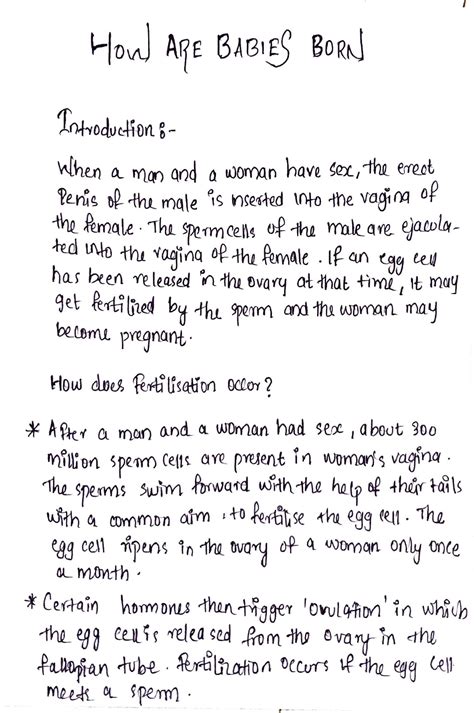 1
HOW ARE BABIES BORN
Introduction :-
When a man and a woman have sex, the erect
Penis of the male is inserted into the vagina of
the female. The sperm cells of the male are ejacula-
ted into the vagina of the female. If an egg cell
has been released in the ovary at that time, it may
get fertilized by the sperm and the woman may
become pregnant.
How does fertilisation occor?
* After a man and a woman had sex, about 300
million sperm cells are present in woman's vagina.
The sperms swim forward with the help of their tails
with a common aim : to fertilise the egg cell. The
egg cell ripens in the ovary of a woman only once
a month.
* Certain hormones then trigger 'ovulation' in which
the egg cell is released from the ovary in the
fallopian tube. fertilization occurs if the egg cell
meets a sperm.